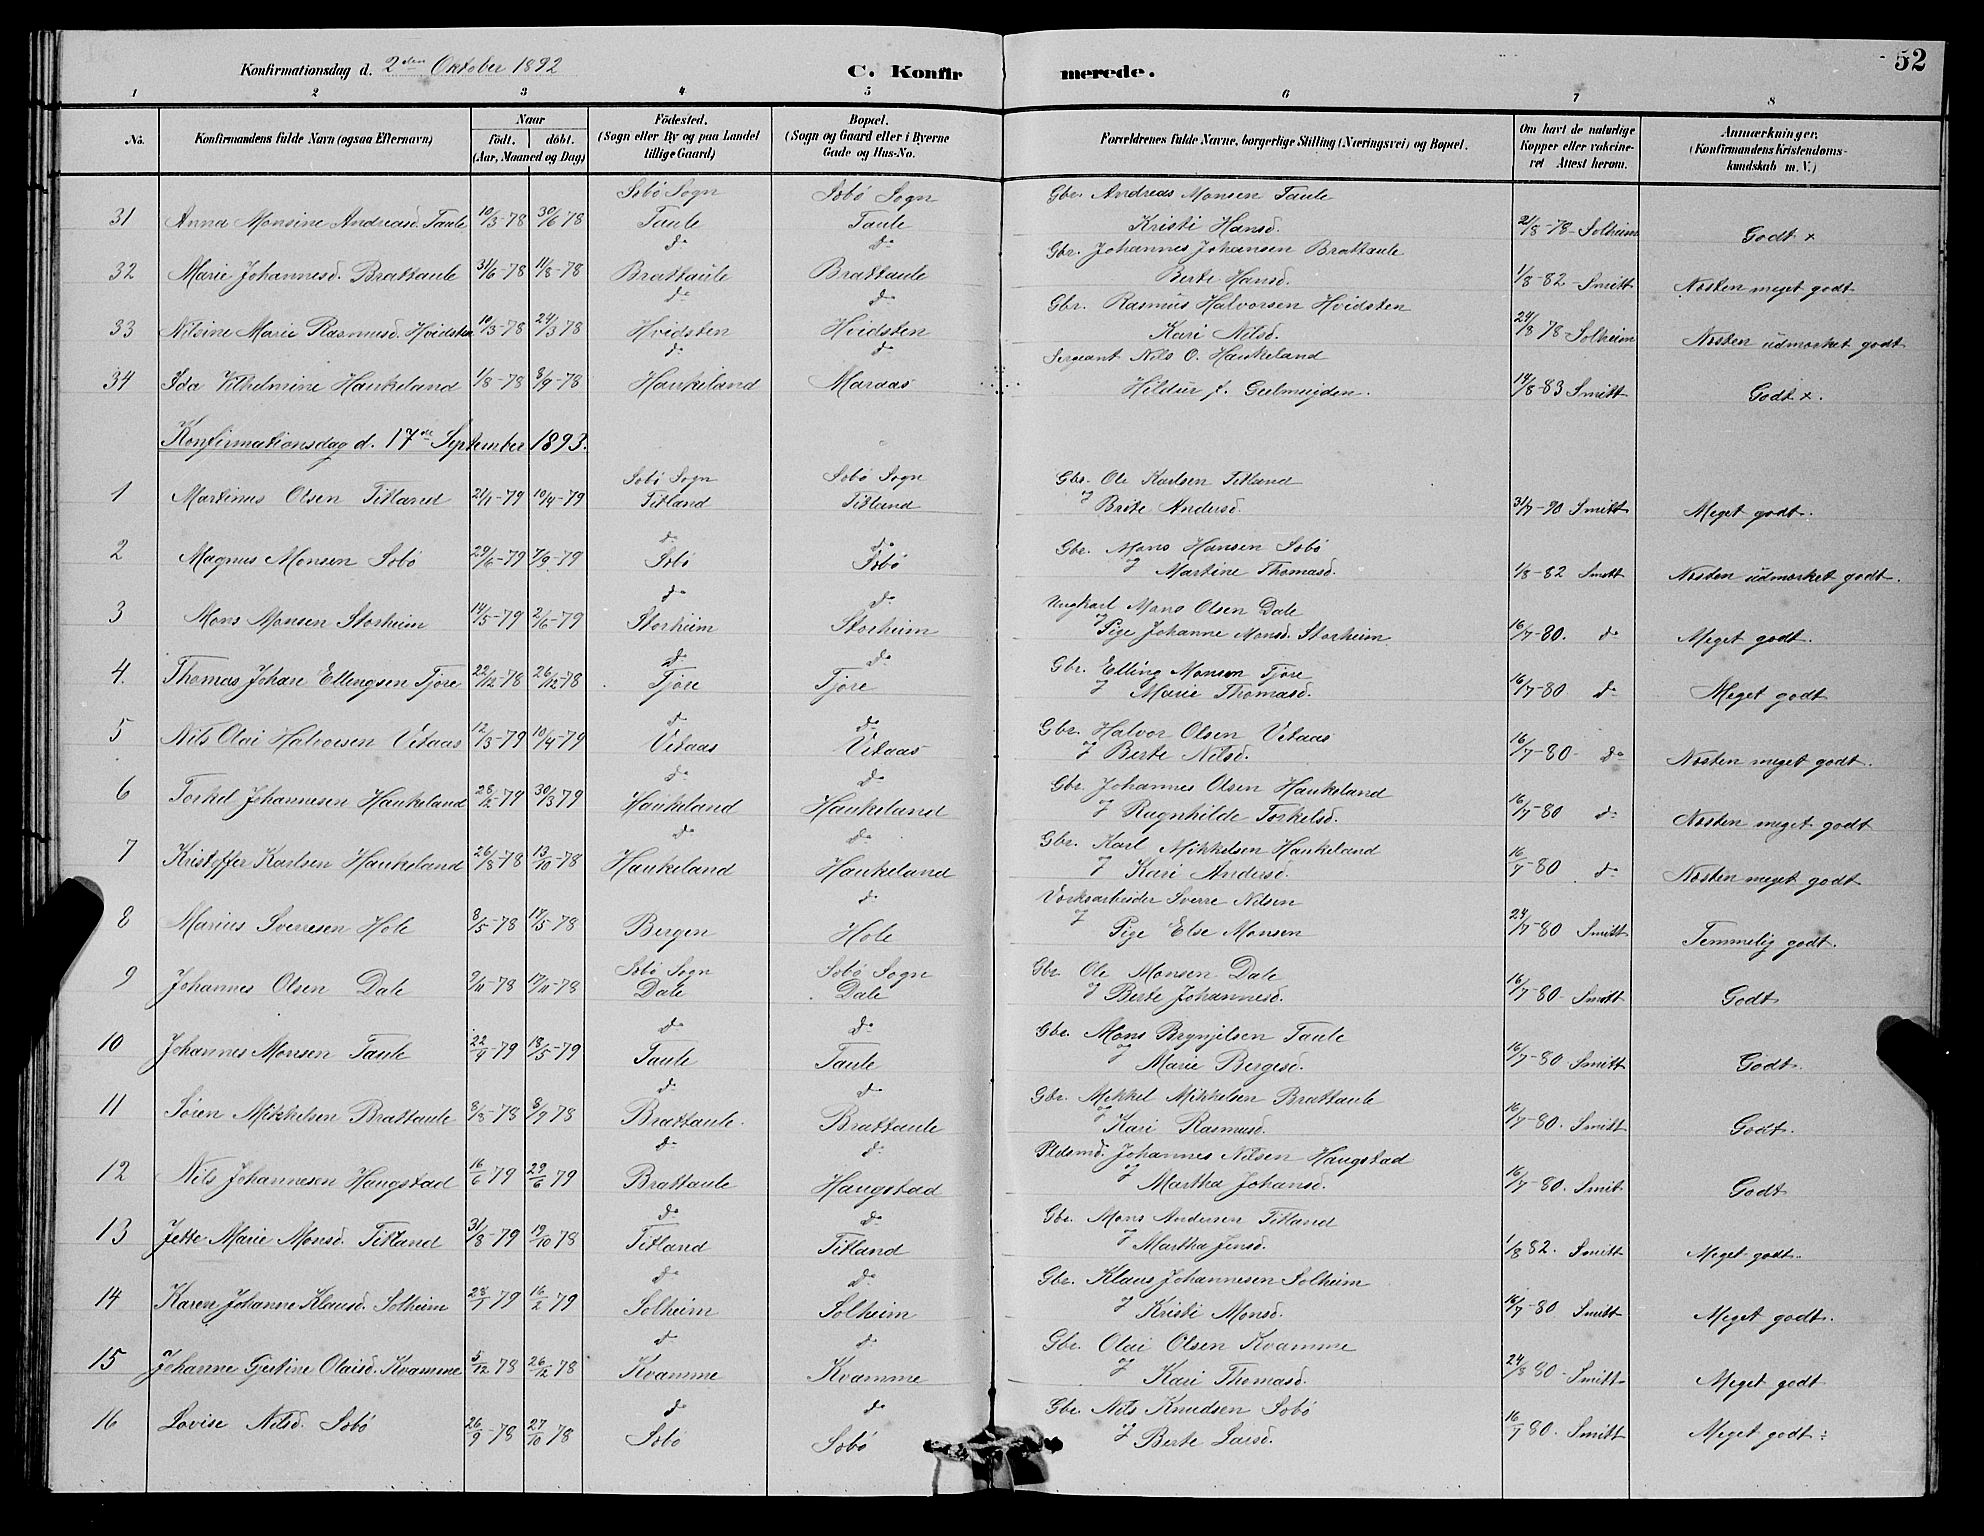 52
Konfirmationsdag d. 2den Oktober 1892 C. Konfirmerede.
1 2 3 4 5 6 7 8
No. Konfirmandens fulde Navn (ogsaa Efternavn) Naar födt. döbt. (Aar, Maaned og Dag) Födested. (Sogn eller By og paa Landet tillige Gaard) Bopæl. (Sogn og Gaard eller i Byerne Gade og Hus-No. Forældrenes fulde Navne, borgerlige Stilling (Næringsvei) og Bopæl. Om havt de naturlige Kopper eller vakcineret Attest herom. Anmærkninger. (Konfirmandens Kristendomskundskab m. V.)
Sobø Sogn Sobø Sogn Gbr. Andreas Monsen Taule
31 Anna Monsine Andreasd. Taule 10/3-78 30/6 78 Taule Taule Kristi Hansd. 21/8-78-Solheim Godt x
do do Gbr. Johannes Johansen Brattaule
32 Marie Johannesd. Brattaule 31/6-78 11/8-78 Brattaule Brattaule Berte Hansd. 1/8-82 Smitt Næsten meget godt
do do Gbr. Rasmus Halvorsen Hvidsten
33 Nilsine Marie Rasmusd. Hvidsten 10/3-78 24/3 78 Hvidsten Hvidsten Kari Nilsd. 24/8 78-Solheim Næsten udmærket godt
do do Sergeant Nils O. Haukeland
34 Ida Vilhelmine Haukeland 1/8-78 8/9-78 Haukeland Maraas Hildur f. Geelmuyden. 14/8-83 Smitt Godt x.
Konfirmationsdag d. 17de September 1893.
Sobø Sogn Sobø Sogn Gbr. Ole Karlsen Titland
1 Martinus Olsen Titland 21/1-79 10/4-79 Titland Titland & Brite Andersd. 31/7-90 Smitt Meget godt.
do do Gbr. Mons Hansen Sobø
2 Magnus Monsen Sobø 29/6-79 7/9-79 Sobø Sobø & Martine Thomasd. 1/8-82 Smitt Næsten udmærket godt.
do do Ungkarl Mons Olsen Dale
3 Mons Monsen Storheim 14/5-79 2/6-79 Storheim Storheim & Pige Johanne Monsd. Storheim 16/7-80. do Meget godt.
do do Gbr. Elling Monsen Tjore
4. Thomas Johan Ellingsen Tjore 22/12-78 26/12-78 Tjore Tjore & Marie Thomasd. 16/7-80 do Meget godt
do do Gbr. Halvor Olsen Vetaas
5 Nils Olai Halvorsen Vetaas 12/3-79 10/4-79 Vetaas Vetaas & Berte Nilsd. 16/7-80- do Næsten meget godt.
do do Gbr. Johannes Olsen Haukeland
6 Torkel Johannesen Haukeland 28/2-79 30/3 79 Haukeland Haukeland & Ragnhilde Torkelsd. 16/7-80 do Næsten meget godt
do do Gbr. Karl Mikkelsen Haukeland
7 Kristoffer Karlsen Haukeland 26/8-78 13/10-78 Haukeland Haukeland & Kari Andersd. 16/7-80 do Næsten meget godt
do Værksarbeider Sverre Nilsen
8 Marius Sverresen Hole 8/5-78 17/5-78 Bergen Hole & Pige Else Monsen 24/7-80 Smitt Temmelig godt.
Sobø Sogn Sobø Sogn Gbr. Ole Monsen Dale
9 Johannes Olsen Dale 9/11-78 17/11-78 Dale Dale & Berte Johannesd. 16/7-80- Smitt Godt
do do Gbr. Mons Brynjelsen Taule
10 Johannes Monsen Taule 22/4-79 18/5-79 Taule Taule & Marie Bergesd. 16/7-80 Smitt Godt.
do do Gbr. Mikkel Mikkelsen Brattaule
11 Søren Mikkelsen Brattaule 8/8-78 8/9 78 Brattaule Brattaule & Kari Rasmusd. 16/7-80. Smitt Godt.
do do Pldsmd. Johannes Nilsen Haugstad
12 Nils Johannesen Haugstad 16/6 79 29/6 79 Brattaule Haugstad & Martha Johansd. 16/7-80. Smitt Godt
do do Gbr. Mons Andersen Titland
13 Jette Marie Monsd. Titland 31/8-79 19/10 78 Titland Titland & Martha Jensd. 1/8 82. Smitt Meget godt.
do do Gbr. Klaus Johannesen Solheim
14 Karen Johanne Klausd. Solheim 28/1 79 16/2 79 Solheim Solheim & Kristi Monsd. 16/7-80 Smitt Meget godt.
do do Gbr. Olai Olsen Kvamme
15 Johanne Gjestine Olaisd. Kvamme 5/12 78 26/12 78 Kvamme Kvamme & Kari Thomasd. 24/8 80-Smitt Meget godt
do do Gbr. Nils Knudsen Sobø
16 Lovise Nilsd. Sobø 26/9-78 27/10 78 Sobø Sobø & Berte Larsd. 16/7 80. Smitt Meget godt